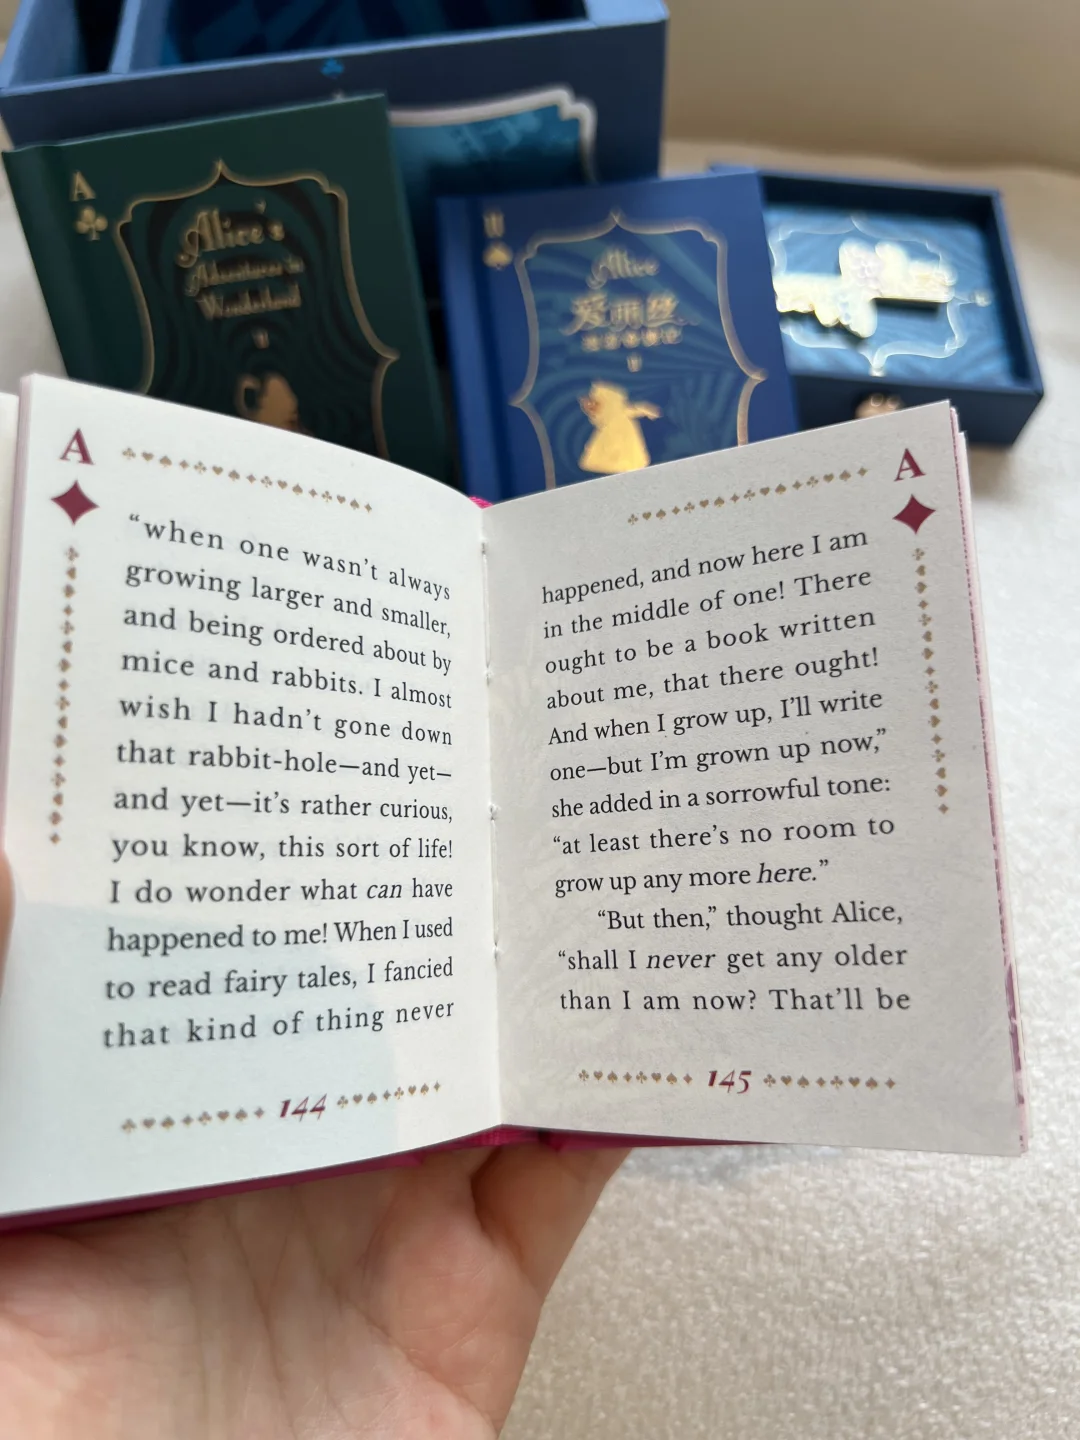 A
Alice's
Adventures in
Wonderland
Alice
爱丽丝
A
“when one wasn’t always
growing larger and smaller,
and being ordered about by
mice and rabbits. I almost
wish I hadn’t gone down
that rabbit-hole—and yet—
and yet—it’s rather curious,
you know, this sort of life!
I do wonder what can have
happened to me! When I used
to read fairy tales, I fancied
that kind of thing never
144
A
happened, and now here I am
in the middle of one! There
ought to be a book written
about me, that there ought!
And when I grow up, I’ll write
one—but I’m grown up now,”
she added in a sorrowful tone:
“at least there’s no room to
grow up any more here.”
“But then,” thought Alice,
“shall I never get any older
than I am now? That’ll be
145